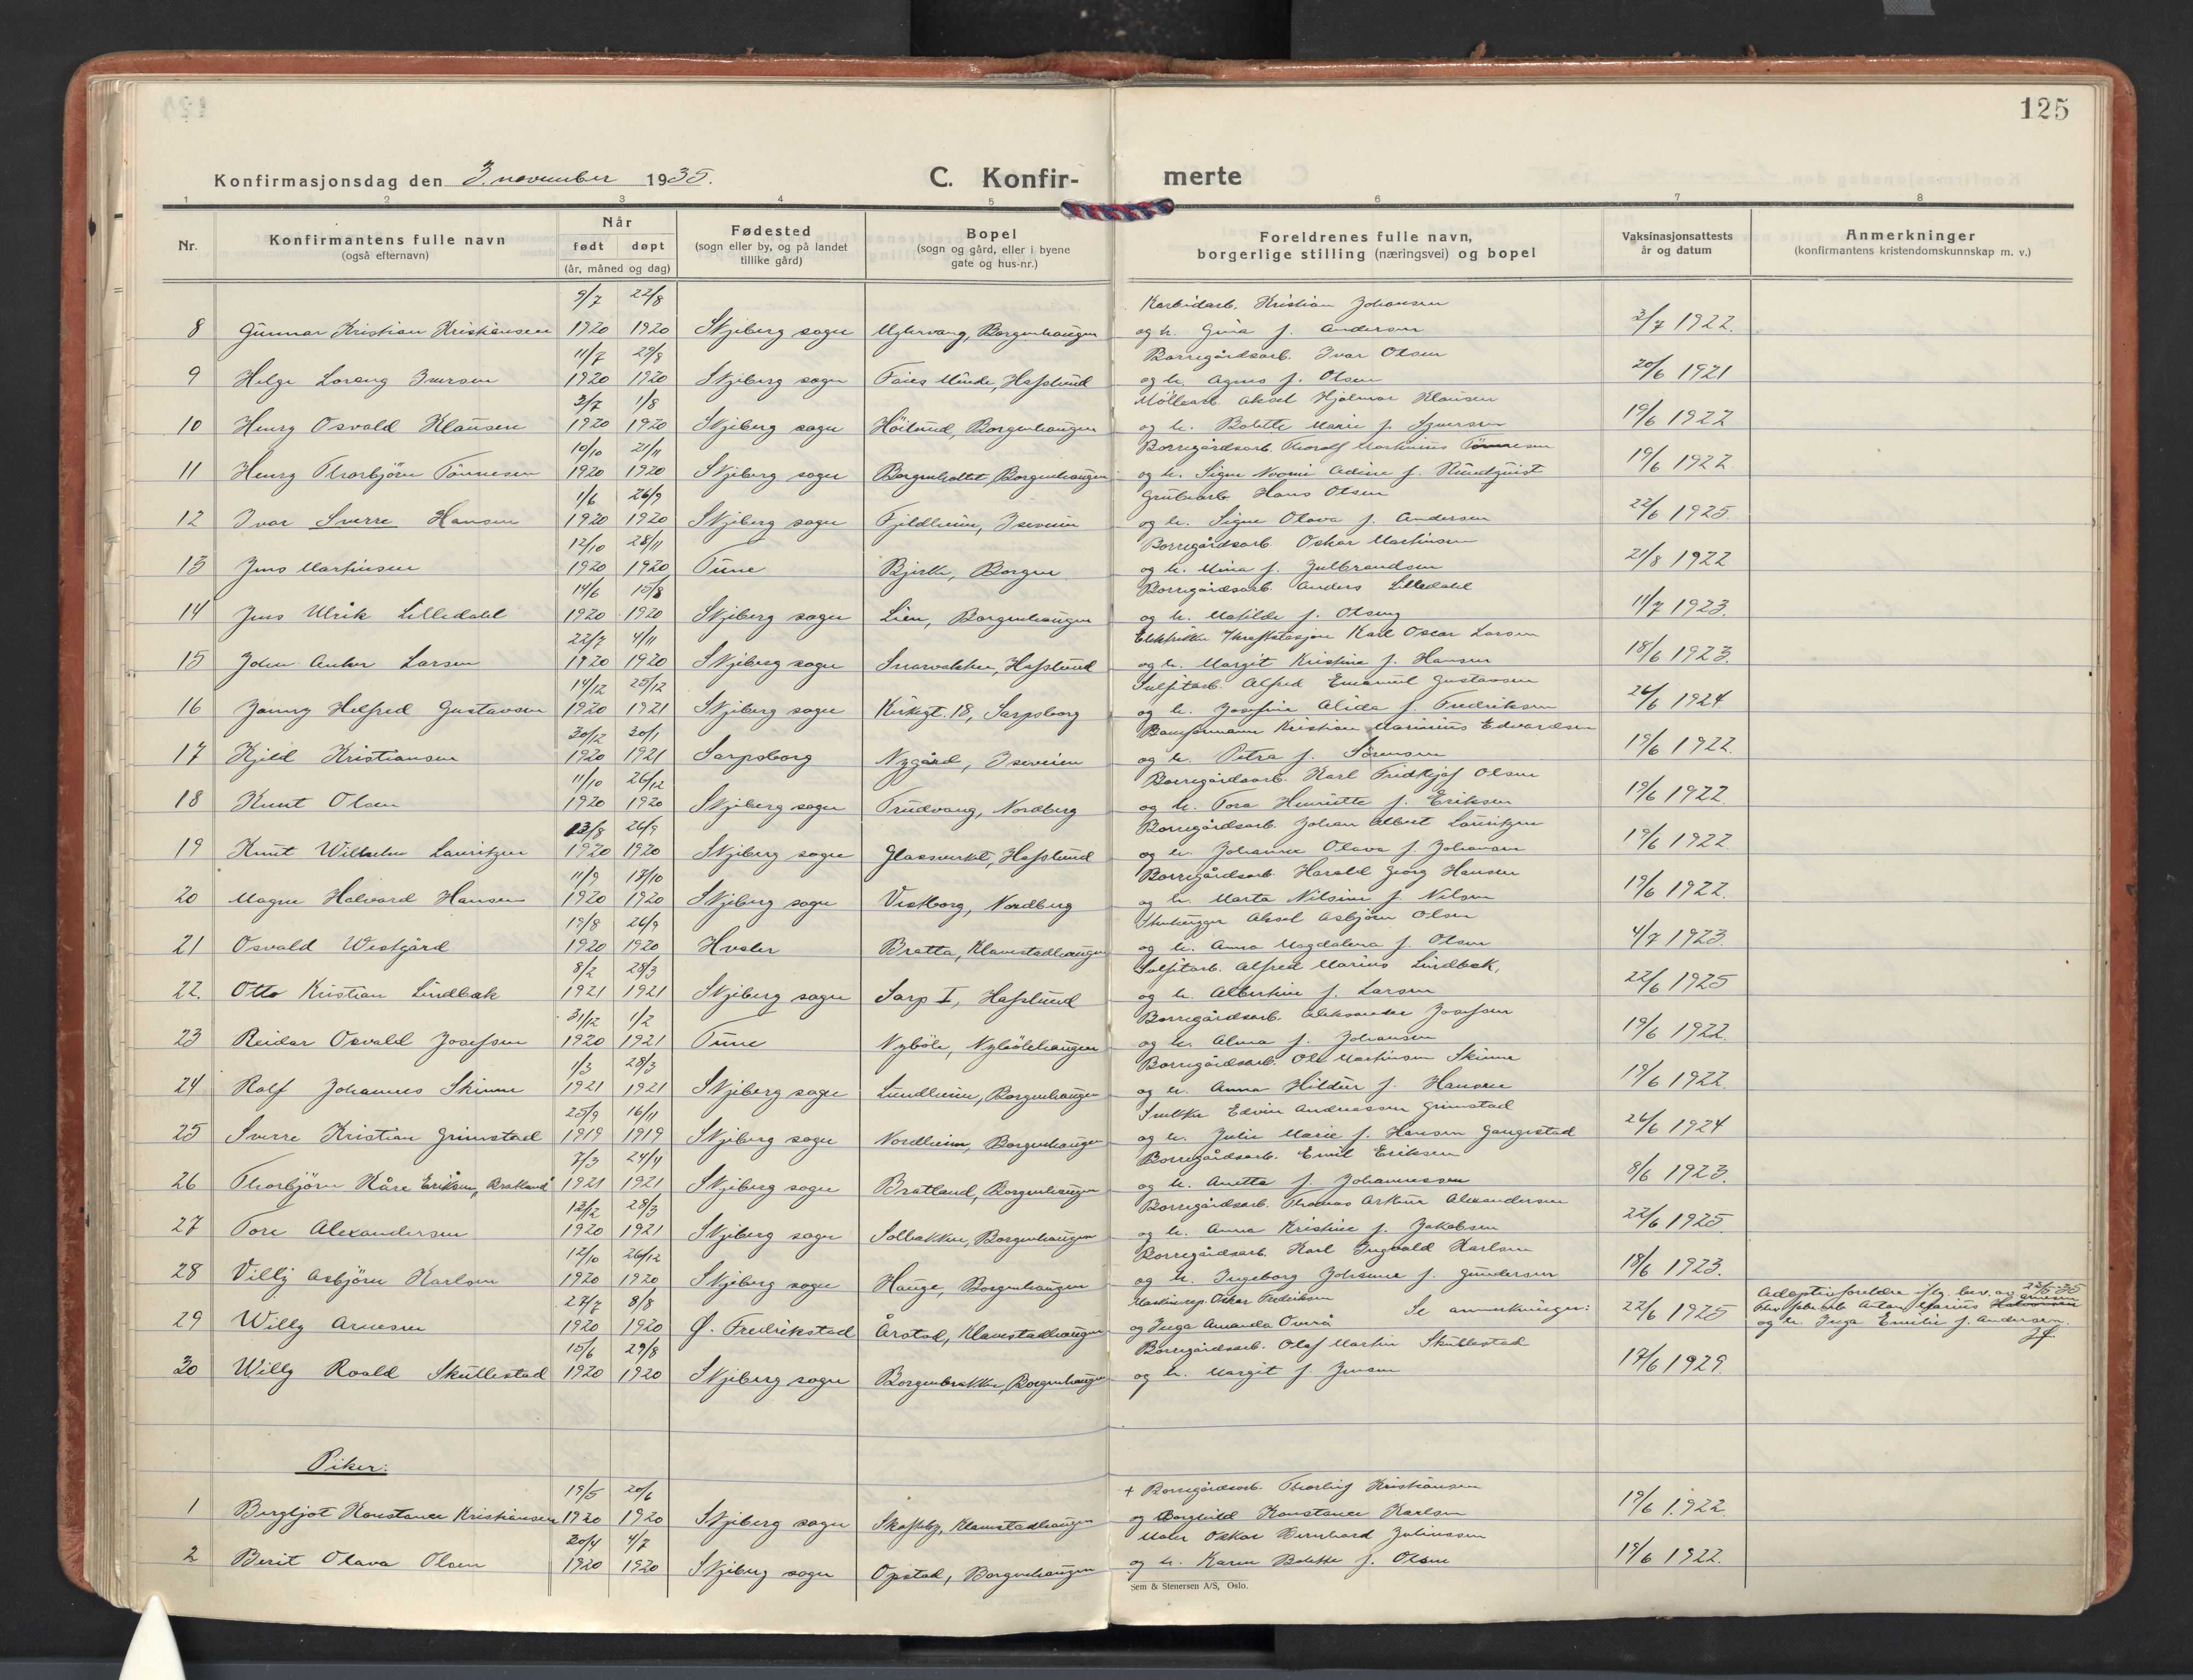 125
Konfirmasjonsdag den 3. november 1935.
C. Konfir- merte
1 2 3 4 5 6 7 8
Nr. Konfirmantens fulle navn (også efternavn) Når født døpt (år, måned og dag) Fødested (sogn eller by, og på landet tillike gård) Bopel (sogn og gård, eller i byene gate og hus-nr.) Foreldrenes fulle navn, borgerlige stilling (næringsvei) og bopel Vaksinasjonsattests år og datum Anmerkninger (konfirmantens kristendomskunnskap m. v.)
9/7 22/8 Karbidarb. Kristian Johansen
8 Gunnar Kristian Kristiansen 1920 1920 Skjeberg sogn Borgenhaugen og h. Gina f. Andersen 3/7 1922.
11/7 29/8 Borregårdsarb. Ivar Olsen
9 Helge Lorang Iversen 1920 1920 Skjeberg sogn Minde, Hafslund og h. Agnes f. Olsen 20/6 1921
3/7 1/8 Møllearb. Aksel Hjalmar Klausen
10 Henry Osvald Klausen 1920 1920 Skjeberg sogn Höilund, Borgenhaugen og h. Bolette Marie f. Syversen 19/6 1922
10/10 21/11 Borregårdsarb. Thoralf Martinius Tönnesen
11 Henry Thorbjörn Tönnesen 1920 1920 Skjeberg sogn Borgenholtet, Borgenhaugen og h. Signe Noomi Adine f. Rundquist 19/6 1922
1/6 26/9 Grubearb. Hans Olsen
12 Ivar Sverre Hansen 1920 1920 Skjeberg sogn Fjeldheim, Iseveien og h. Signe Olava f. Andersen 22/6 1925
12/10 28/11 Borregårdsarb. Oskar Martinsen
13 Jens Martinsen 1920 1920 Tune Bjerke, Borgen og h. Mina f. Gulbrandsen 21/8 1922
14/6 15/8 Borregårdsarb. Anders Lilledahl
14 Jens Ulrik Lilledahl 1920 1920 Skjeberg sogn Lien, Borgenhaugen og h. Matilde f. Olsen 11/7 1923.
22/7 4/11 Karl Oscar Larsen
15 John Anker Larsen 1920 1920 Skjeberg sogn Snarvakken, Hafslund og h. Margit Kristine f. Hansen 18/6 1923.
14/12 25/12 Sulfitarb. Alfred Emanuel Gustavsen
16 Jonny Helfred Gustavsen 1920 1921 Skjeberg sogn Kirkegt. 18, Sarpsborg og h. Josefine Alida f. Fredriksen 26/6 1924
30/12 30/1 Baneformann Kristian Marinius Edvardsen
17 Kjeld Kristiansen 1920 1921 Sarpsborg Nygård, Iseveien og h. Petra f. Sörensen 19/6 1922.
11/10 26/12 Borregårdsarb. Karl Fridtjof Olsen
18 Knut Olsen 1920 1920 Skjeberg sogn Trudvang, Nordberg og h. Tora Henriette f. Eriksen 19/6 1922.
13/8 26/9 Borregårdsarb. Johan Albert Lauritzen
19 Knut Wilhelm Lauritzen 1920 1920 Skjeberg sogn Glassverket, Hafslund og h. Johanne Olava f. Johansen 19/6 1922.
11/9 17/10 Borregårdsarb. Harald Georg Hansen
20 Magne Halvard Hansen 1920 1920 Skjeberg sogn Vestborg, Nordberg og h. Marta Nilsine f. Nilsen 19/6 1922.
19/8 26/9 Stenhugger Aksel Asbjörn Olsen
21 Osvald Westgård 1920 1920 Hvaler Bratta, Klavestadhaugen og h. Anna Magdalena f. Olsen 4/7 1923.
8/2 28/3 Sulfitarb. Alfred Marius Lindbæk,
22. Otto Kristian Lindbæk 1921 1921 Skjeberg sogn Sarp I, Hafslund og h. Albertine f. Larsen 22/6 1925
31/12 1/2 Borregårdsarb. Aleksander Josefsen
23 Reidar Osvald Josefsen 1920 1921 Tune Nyböle, Nybölehaugen og h. Alma f. Johansen 19/6 1922.
1/3 28/3 Borregårdsarb. Ole Martinsen Skinne
24 Rolf Johannes Skinne 1921 1921 Skjeberg sogn Lundheim, Borgenhaugen og h. Anna Hildur f. Hansen 19/6 1922.
25/9 16/11 Snekker Edvin Andreassen Grimstad
25 Sverre Kristian Grimstad 1919 1919 Skjeberg sogn Nordheim, Borgenhaugen og h. Julie Marie f. Hansen Gangestad 26/6 1924
7/3 24/4 Borregårdsarb. Emil Eriksen
26 Thorbjörn Kåre Eriksen „Bratland" 1921 1921 Skjeberg sogn Bratland, Borgenhaugen og h. Anetta f. Johannessen 8/6 1923.
12/2 28/3 Borregårdsarb. Thomas Arthur Alexandersen
27 Tore Alexandersen 1920 1921 Skjeberg sogn Solbakken, Borgenhaugen og h. Anna Kristine f. Jakobsen 22/6 1925.
12/10 26/12 Borregårdsarb. Karl Ingvald Karlsen
28 Villy Asbjörn Karlsen 1920 1920 Skjeberg sogn Hauge, Borgenhaugen og h. Ingeborg Johanne f. Gundersen 18/6 1923.
27/7 8/8 Maskinrep. Oskar Fredriksen Se anmerkninger: Adoptivforeldre iflg. bev. av 22/5-35
29 Willy Arnesen 1920 1920 Ø. Fredrikstad Årstad, Klavestadhaugen og Inga Amanda 22/6 1925 Anton Marius Halvorsen Arnesen
og h. Inga Emilie f. Andersen.
15/6 29/8 Borregårdsarb. Olaf Martin Skullestad
30 Willy Roald Skullestad 1920 1920 Skjeberg sogn Borgenbakken, Borgenhaugen og h. Margit f. Jensen 17/6 1929.
Piker:
19/5 20/6 + Borregårdsarb. Thorleif Kristiansen
1 Bergljot Konstance Kristiansen 1920 1920 Skjeberg sogn Skofteby, Klavestadhaugen og Borghild Konstance Karlsen 19/6 1922.
20/4 4/7 Maler Oskar Bernhard Juliussen
2 Berit Olava Olsen 1920 1920 Skjeberg sogn Opstad, Borgenhaugen og h. Karen Bolette f. Olsen 19/6 1922.
Sem & Stenersen A/S, Oslo.